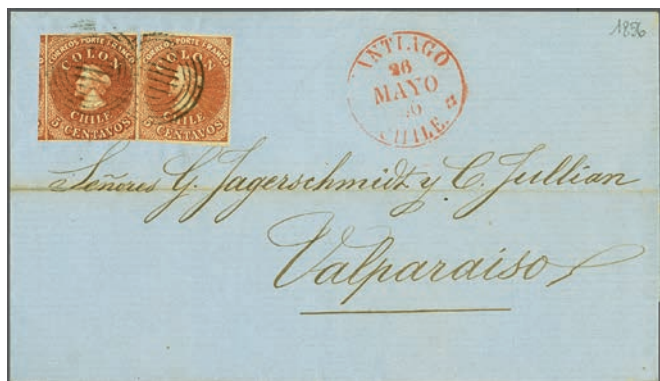 1856
CORREOS PORTE FRANCO
COLON
CHILE
5 CENTAVOS
CORREOS PORTE FRANCO
COLON
CHILE
5 CENTAVOS
ANTIAGO
26
MAYO
CHILE.
Señores G. Jagerschmidt y C. Jullian
Valparaiso